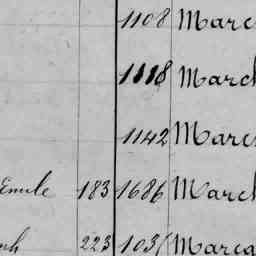 1108 Marc
1118 March
1142 Marc
Emile 183 1686 March
ph 223 103 Marca